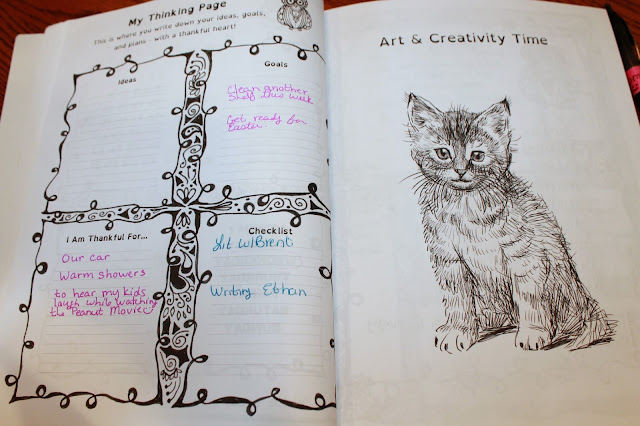 My Thinking Page
This is where you write down your ideas, goals,
and plans - with a thankful heart!
Ideas
Goals
Clean another
Shelf this week
Get ready for
Easter
I Am Thankful For...
Our car
Warm showers
to hear my kids
laugh while watching
the Peanut Movie
Checklist
Lit w/Brent
Writing Ethan
Art & Creativity Time